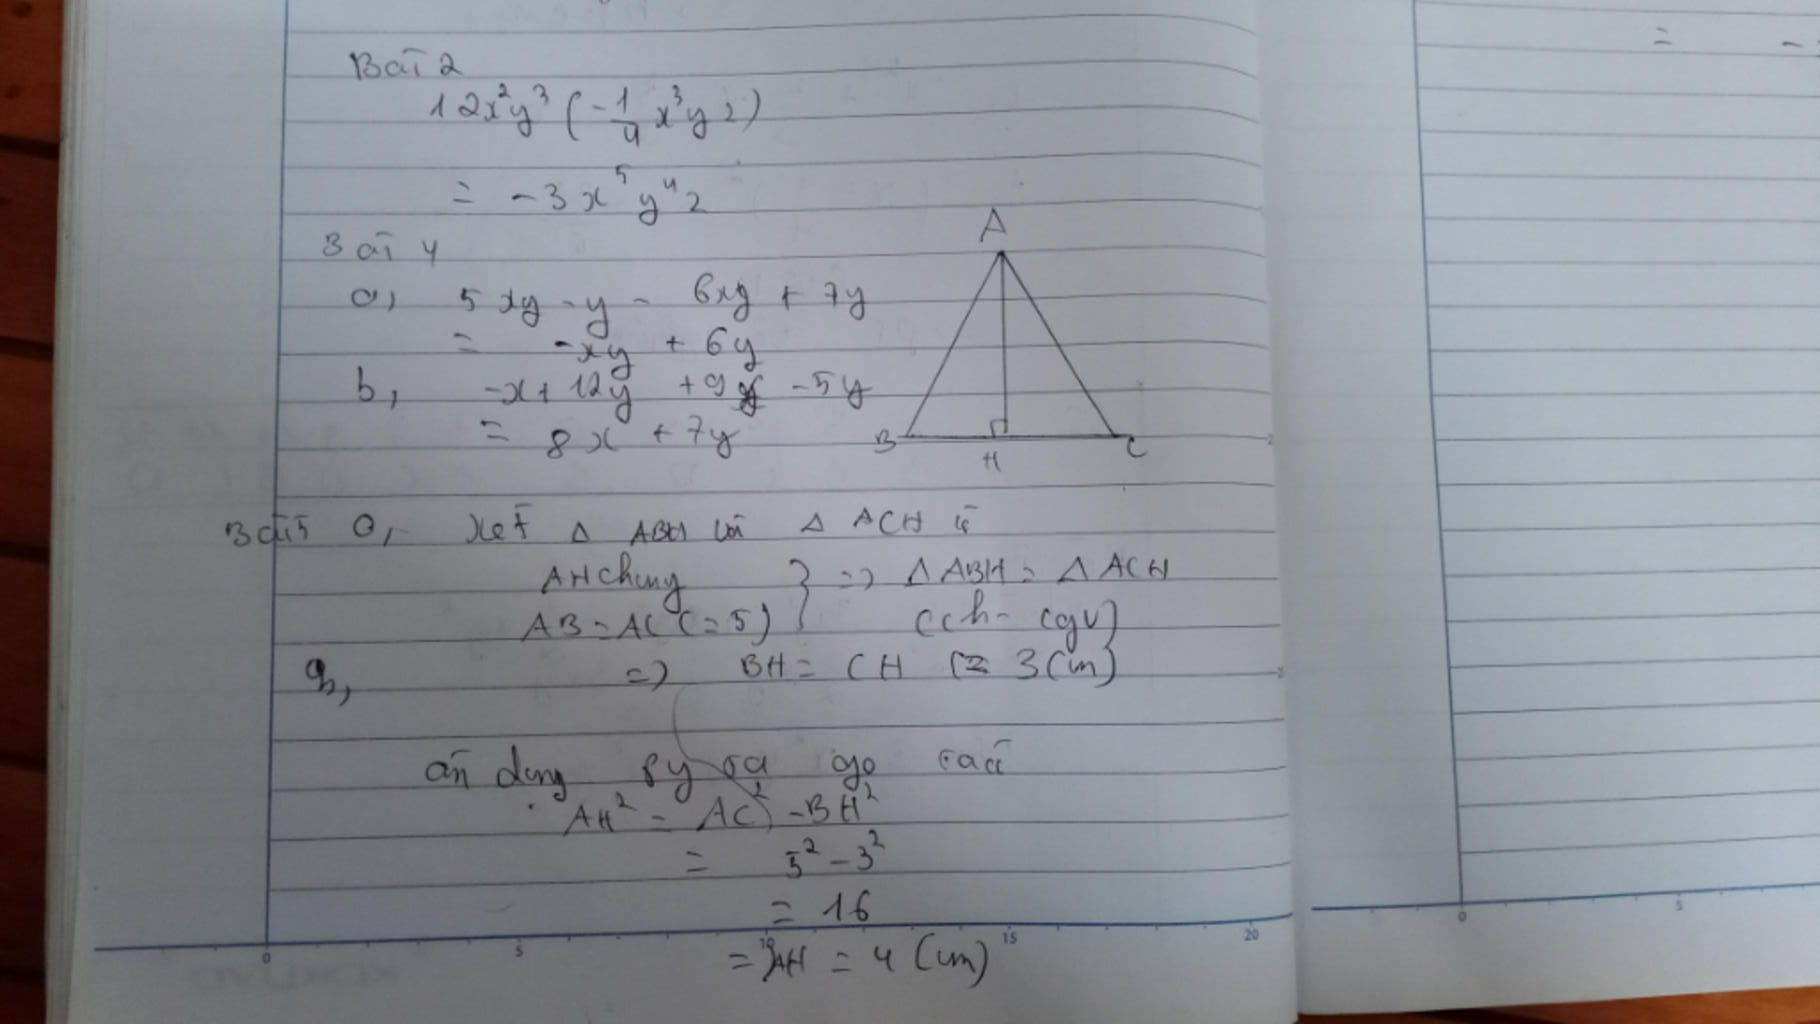 Bài 2
12x²y³ (-1/4 x³yz)
= -3x⁵y⁴z
Bài 4
a, 5xy - y - 6xy + 7y
= -xy + 6y
b, -x + 12y + 9x - 5y
= 8x + 7y
A
B H C
Bài 5 a, Xét Δ ABH và Δ ACH có
AH chung } => Δ ABH = Δ ACH
AB = AC (= 5) (ch - cgv)
b, => BH = CH (= 3cm)
AH² = AC² - BH²
= 5² - 3²
= 16
=> AH = 4 (cm)
0 5 10 15 20
0 5
= -